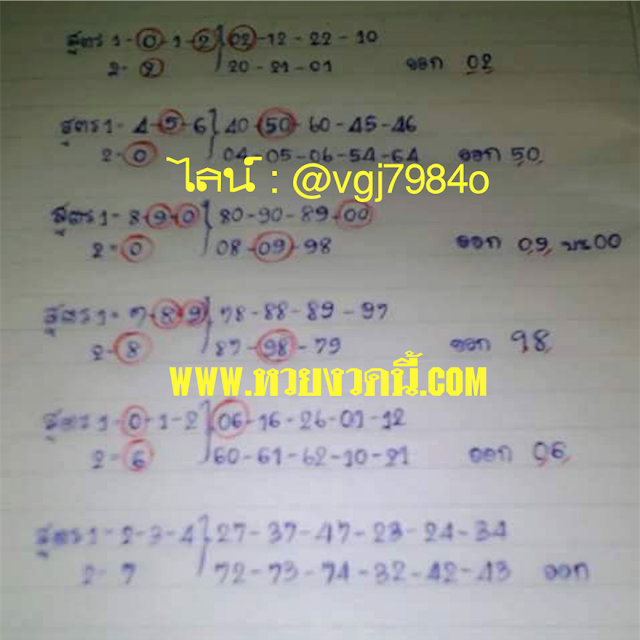 สูตร 1 - 0 - 1 - 2 } 02 - 12 - 22 - 10
2 - 2 20 - 21 - 01 ออก 02
สูตร 1 - 4 - 5 - 6 } 40 - 50 - 60 - 45 - 46
2 - 0 04 - 05 - 06 - 54 - 64 ออก 50
ไลน์ : @vgj7984o
สูตร 1 - 8 - 9 - 0 } 80 - 90 - 89 - 00
2 - 0 08 - 09 - 98 ออก 09 บน 00
สูตร 1 - 7 - 8 - 9 } 78 - 88 - 89 - 97
2 - 8 87 - 98 - 79 ออก 98
www.หวยงวดนี้.COM
สูตร 1 - 0 - 1 - 2 } 06 - 16 - 26 - 01 - 12
2 - 6 60 - 61 - 62 - 10 - 21 ออก 06
สูตร 1 - 2 - 3 - 4 } 27 - 37 - 47 - 23 - 24 - 34
2 - 7 72 - 73 - 74 - 32 - 42 - 43 ออก